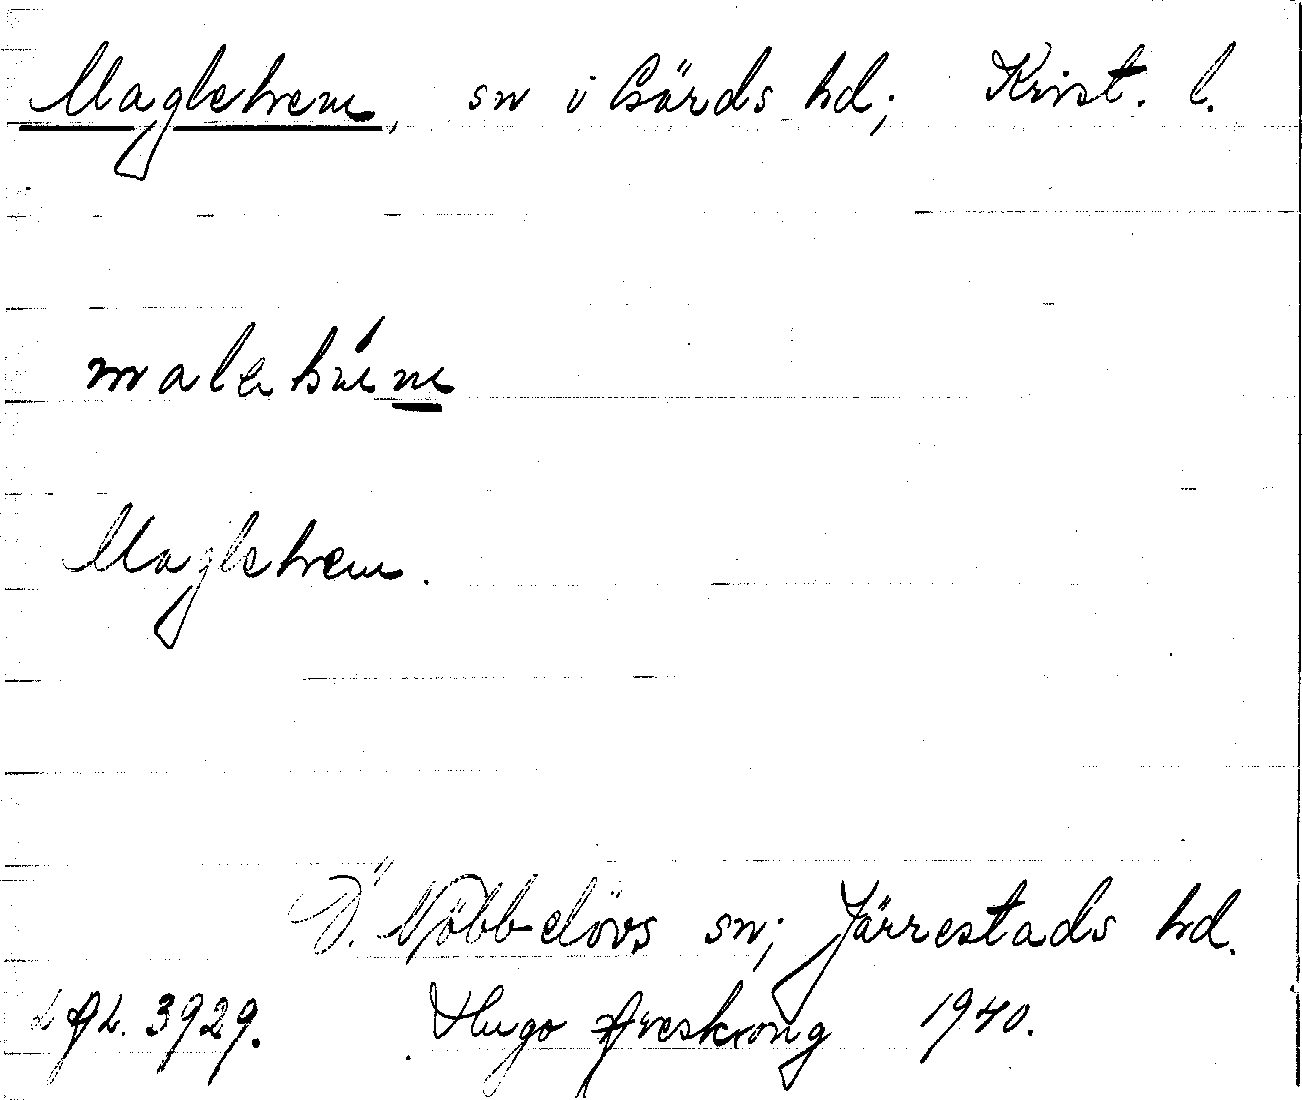 Maglehem, sn i Gärds hd; Krist. l.
Maglehem.
Ö. Nöbbelövs sn; Järrestads hd.
3929. Hugo Areskoug 1940.